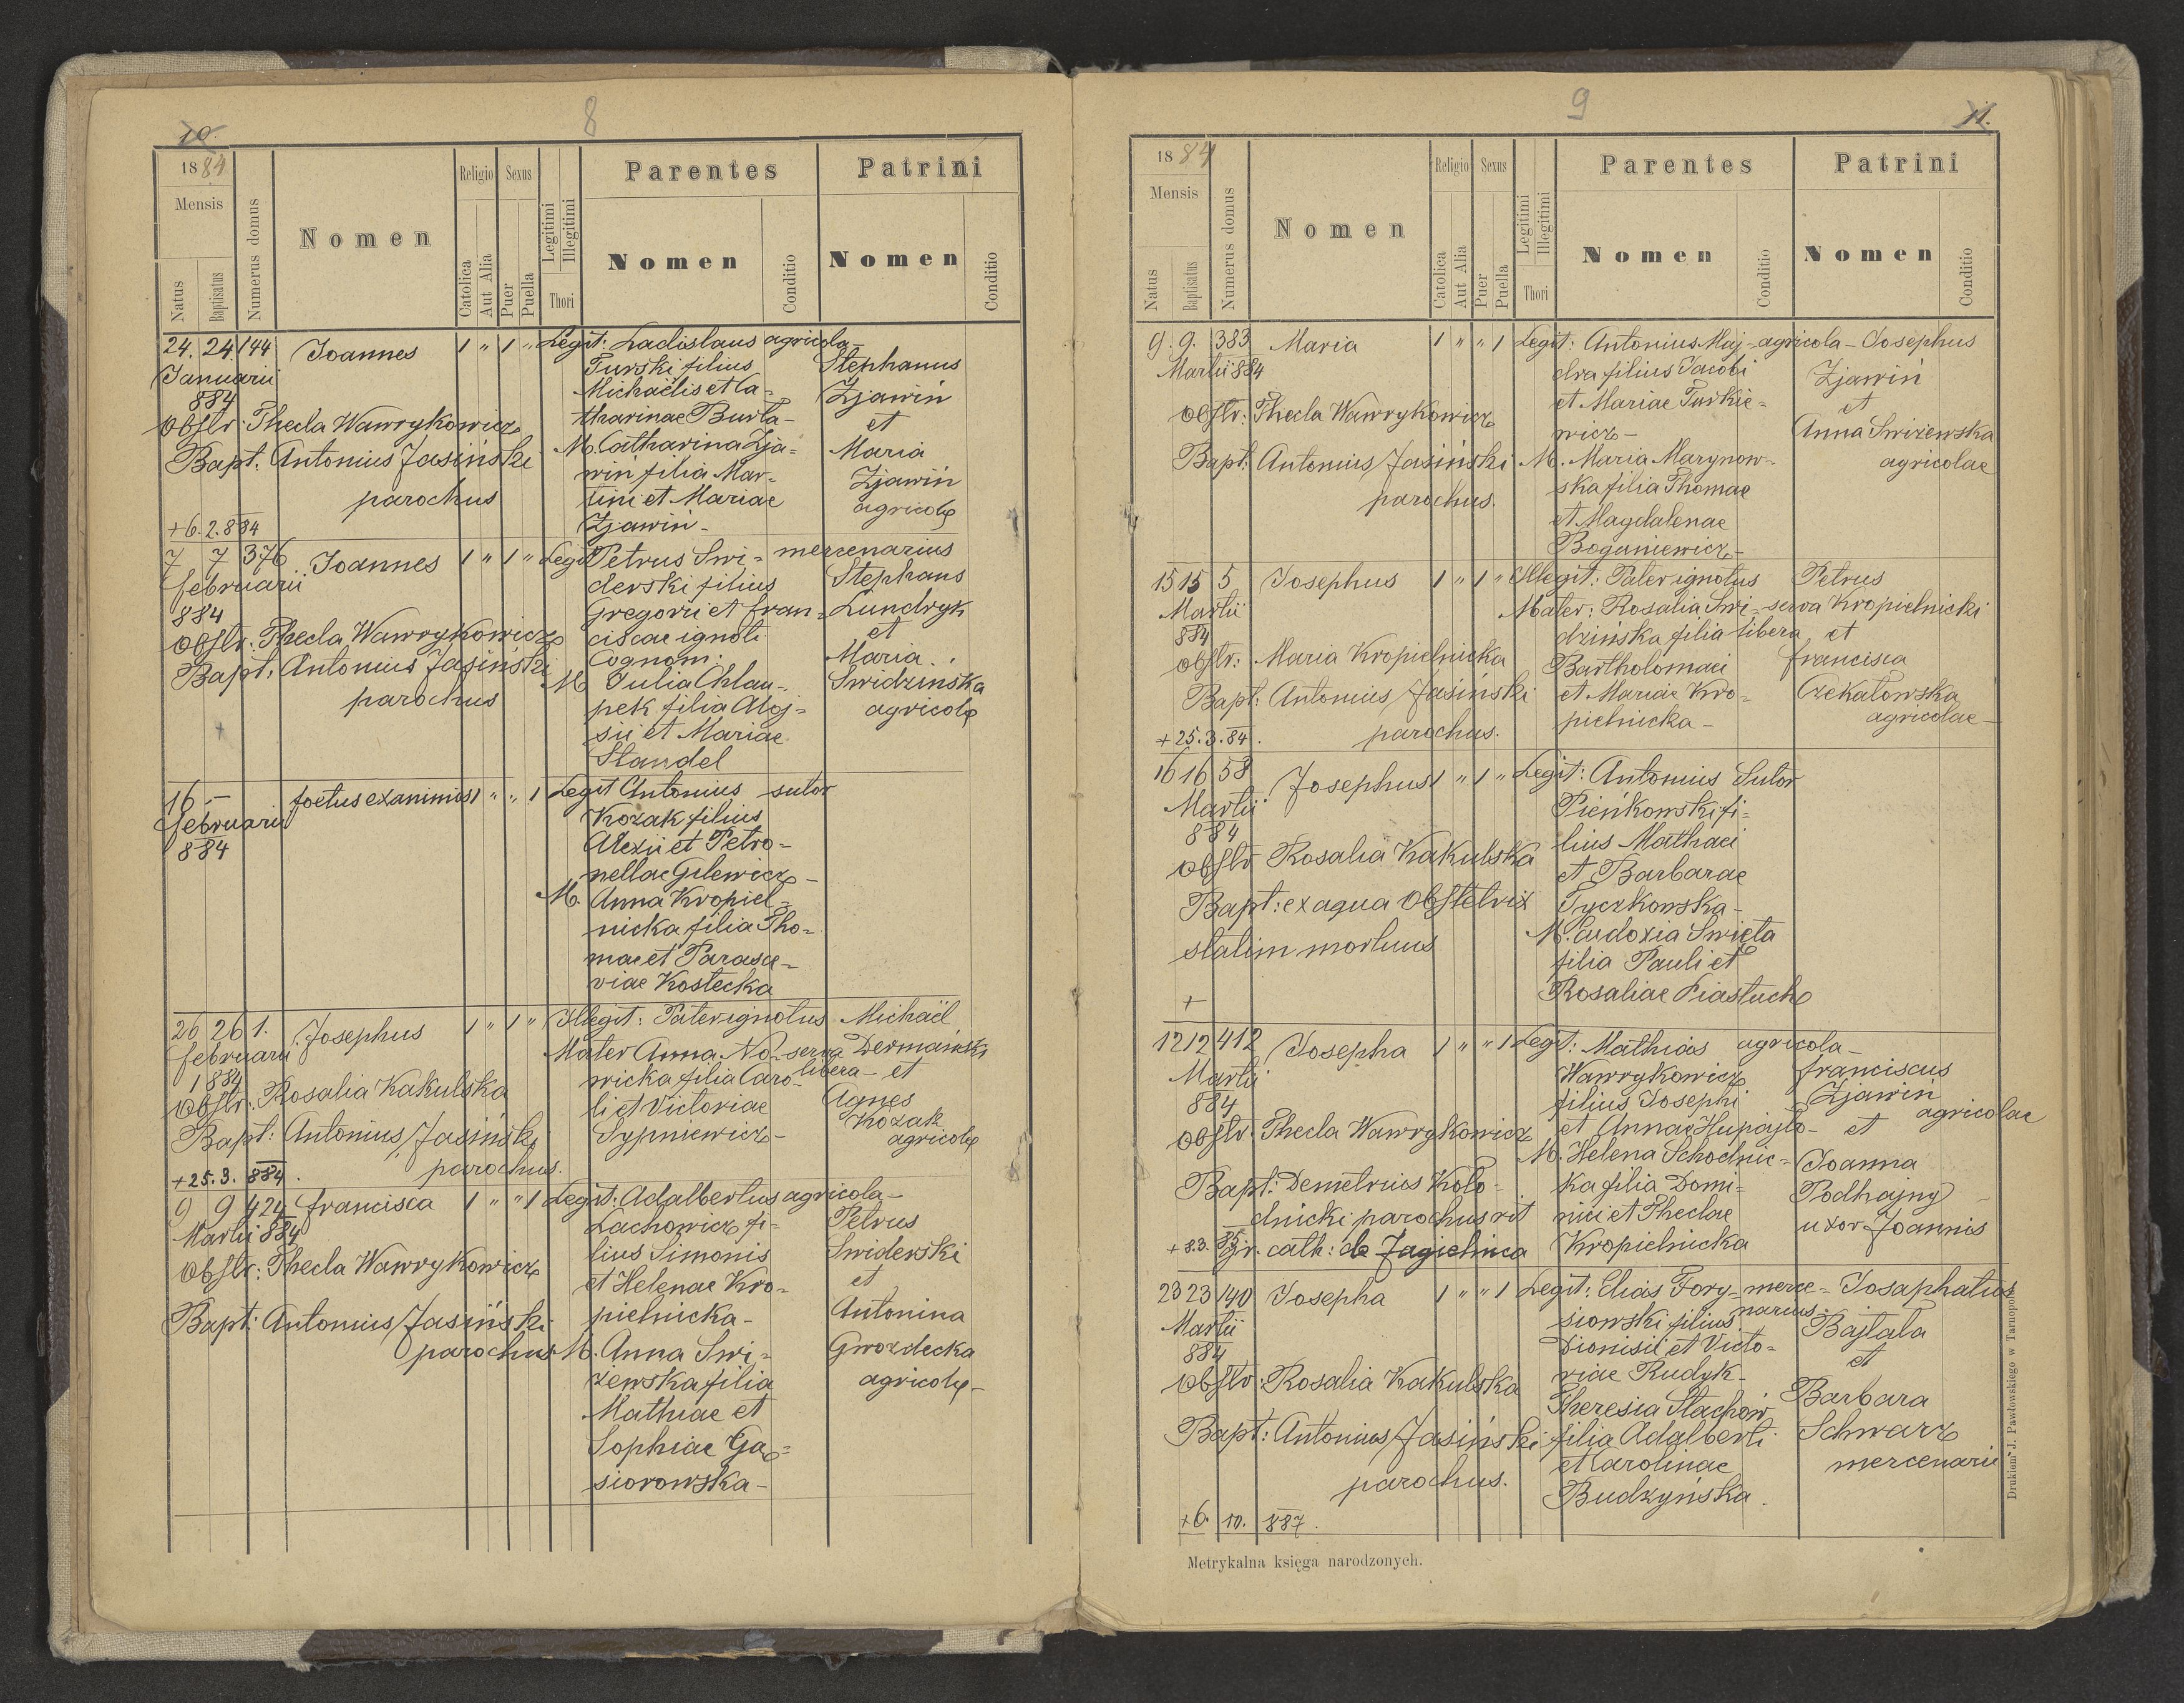 10.
8
1884
Mensis
Natus
Baptisatus
Numerus domus
Nomen
Religio
Catolica
Aut Alia
Sexus
Puer
Puella
Legitimi
Illegitimi
Thori
Parentes
Nomen
Conditio
Patrini
Nomen
Conditio
24. 24. 144 Joannes 1 " 1 " Legit: Ladislaus agricola-
Januarii Turski filius Stephanus
884 Michaëlis et Ca= Zjawiń
Obstr: Thecla Wawrykowicz tharinae Burla- et
Bapt: Antonius Jasiński M. Catharina Zja= Maria
parochus win filia Mar= Zjawiń
tini et Mariae agricolę
+6.2.884 Zjawiń-
7 7 376 Joannes 1 " 1 " Legit Petrus Swi= mercenarius
februarii derski filius Stephans
884 Gregorii et fran= Lundryk
Obstr: Thecla Wawrykowicz ciscae ignoti et
Bapt: Antonius Jasiński Cognom: Maria
parochus M Julia Chlau- Swidzinska
pek filia Aloj= agricolę
+ sii et Mariae
Standel
16 - foetus exanimis 1 " " 1 Legit Antonius sutor
februarii Kozak filius
884 Alexii et Petro-
nellae Gilewicz-
M. Anna Kropiel-
nicka filia Tho-
mae et Parasce-
viae Kostecka
26 26 1. Josephus 1 " 1 " Illegit: Pater ignotus Michaël
februarii Mater Anna No- serva Dermański
1884 wicka filia Caro- libera- et
Obstr: Rosalia Kakulska li et Victoriae Agnes
Bapt: Antonius Jasiński Sypniewicz- Kozak
parochus. agricolę
+25.3.884.
9 9 424 francisca 1 " " 1 Legit: Adalbertus agricola-
Martii 884 Lachowicz fi- Petrus
Obstr: Thecla Wawrykowicz lius Simonis Swiderski
et Helenae Kro- et
Bapt: Antonius Jasiński pielnicka- Antonina
parochus M. Anna Swi- Gwozdecka
żewska filia agricolę-
Mathiae et
Sophiae Gą=
siorowska-
11.
9
1884
Mensis
Natus
Baptisatus
Numerus domus
Nomen
Religio
Catolica
Aut Alia
Sexus
Puer
Puella
Legitimi
Illegitimi
Thori
Parentes
Nomen
Conditio
Patrini
Nomen
Conditio
9. 9. 383 Maria 1 " " 1 Legit: Antonius Maj- agricola- Josephus
Martii 884 dra filius Jacobi Zjawiń
Obstr: Thecla Wawrykowicz et Mariae Turkie= et
wicz- Anna Swizewska
Bapt: Antonius Jasiński M. Maria Marynow- agricolae
parochus. ska filia Thomae
et Magdalenae
Boguniewicz-
15 15 5 Josephus 1 " 1 " Illegit: Pater ignotus Petrus
Martii Mater: Rosalia Swi- serva Kropielnicki
884 dzińska filia libera, et
Obstr: Maria Kropielnicka Bartholomaei francisca
Bapt: Antonius Jasiński et Mariae Kro- Czekałowska
parochus. pielnicka- agricolae-
+25.3.84.
16 16 58 Josephus 1 " 1 " Legit: Antonius Sutor
Martii Pieńkowski fi=
884 lius Mathaei
Obstr Rosalia Kakulska et Barbarae
Bapt: ex aqua Obstetrix Tyczkowska-
M. Eudoxia Swięta
statim mortuus filia Pauli et
+ Rosaliae Piastuch
12 12 412 Josepha 1 " " 1 Legit: Mathias agricola-
Martii Wawrykowicz franciscus
884 filius Josephi Zjawiń
Obstr: Thecla Wawrykowicz et Annae Hupajło- et agricolae
M. Helena Schodnic= Joanna
Bapt: Demetrius Koło- ka filia Domi- Podhajny
dnicki parochus rit nici et Theclae uxor Joannis
+8.3. gr. cath: de Jagielnica Kropielnicka
23 23 140 Josepha 1 " " 1 Legit: Elias Fory= merce= Josaphatus
Martii siowski filius narius- Bajtala
884 Dionisii et Victo= et
Obstr: Rosalia Kakulska riae Rudyk- Barbara
Theresia Stachów Schwarz
Bapt: Antonius Jasiński filia Adalberti mercenarii
parochus. et Carolinae
Budzyńska.
+6. 10. 887.
Metrykalna księga narodzonych.
Drukiem J. Pawłowskiego w Tarnopolu